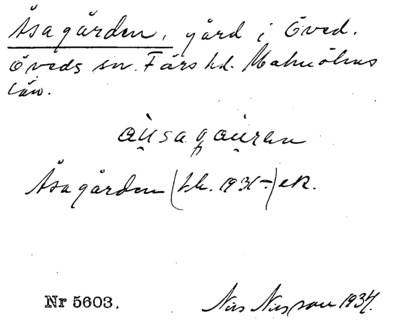 Åsagården, gård i Öved.
Öveds sn. Färs hd. Malmöhus
län.
åu̯sagåu̯ran
Åsagården (tk. 1931-) ek.
Nr 5603.
Nils Nilsson 1934.